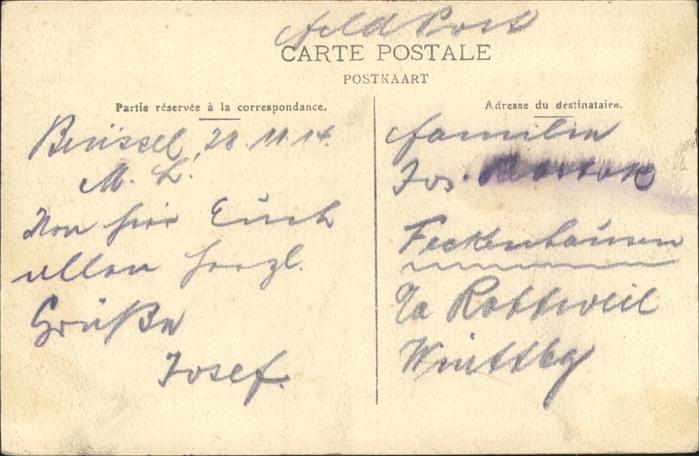 Feld Post
CARTE POSTALE
POSTKAART
Partie réservée à la correspondance.
Brüssel, 28.11.14.
M. L.
Von hier Euch
allen herzl.
Grüße
Josef.
Adresse du destinataire.
Familie
Jos.
Feckenhausen
Rottweil
Württbg